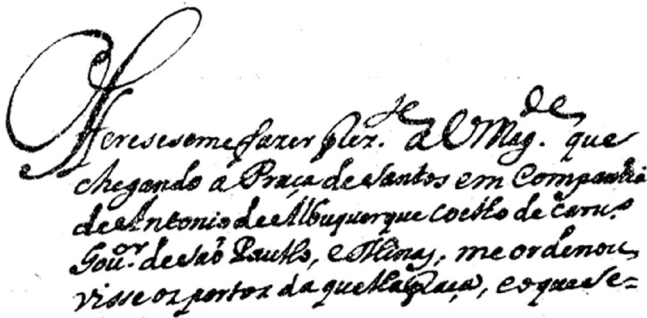 Offeresseme fazer prez.te a V Mag.de que
chegando a Praça de Santos em Companhia
de Antonio de Albuquerque Coelho de Caru.o
Gou.or de São Paullo, e Minas, me ordenou
visse os portos da quella Praça, e o que se=